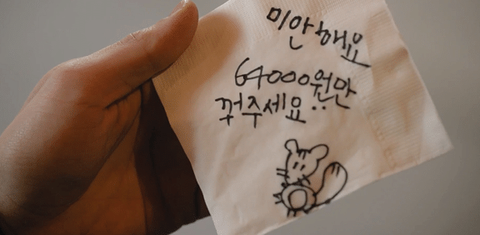 미안해요
64000원만
꺼주세요..